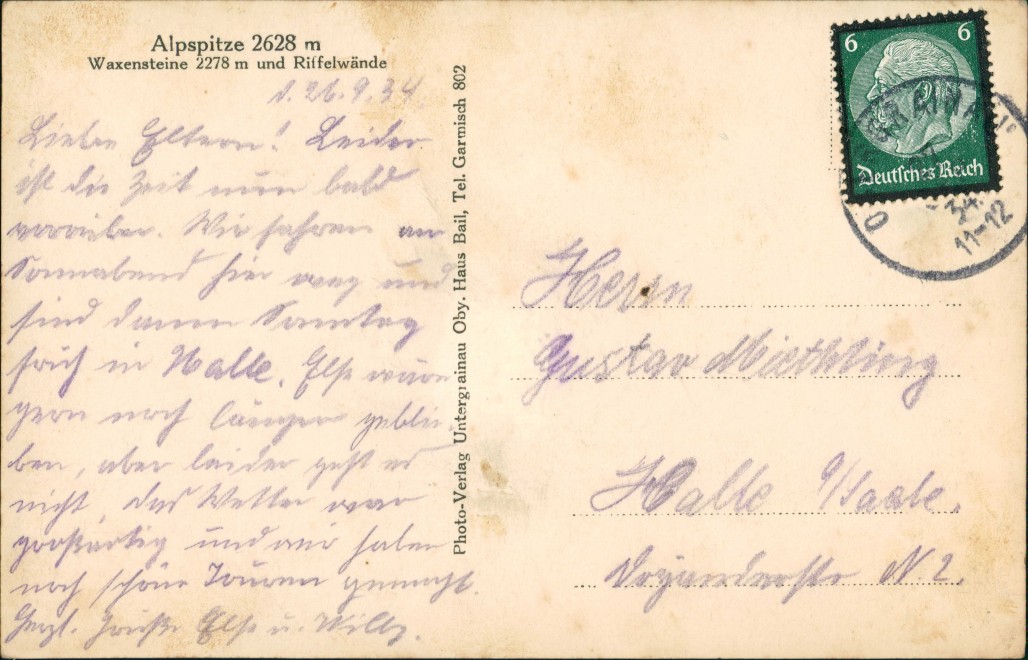 Alpspitze 2628 m
Waxensteine 2278 m und Riffelwände
d. 26.9.34
Liebe Eltern! Leider
ist die Zeit nun bald
vorrüber. Wir fahren am
Sonnabend hier weg und
sind dann Sonntag
früh in Halle. Else wäre
gern noch länger geblie-
ben, aber leider geht es
nicht, das Wetter war
großartig und wir haben
noch schöne Touren gemacht.
Herzl. Grüße Else u. Willy.
Photo-Verlag Untergrainau Oby. Haus Bail, Tel. Garmisch 802
6 6
Deutsches Reich
34.
11-12
Herrn
Gustav Miethling
Halle a/Saale.
N. 2.